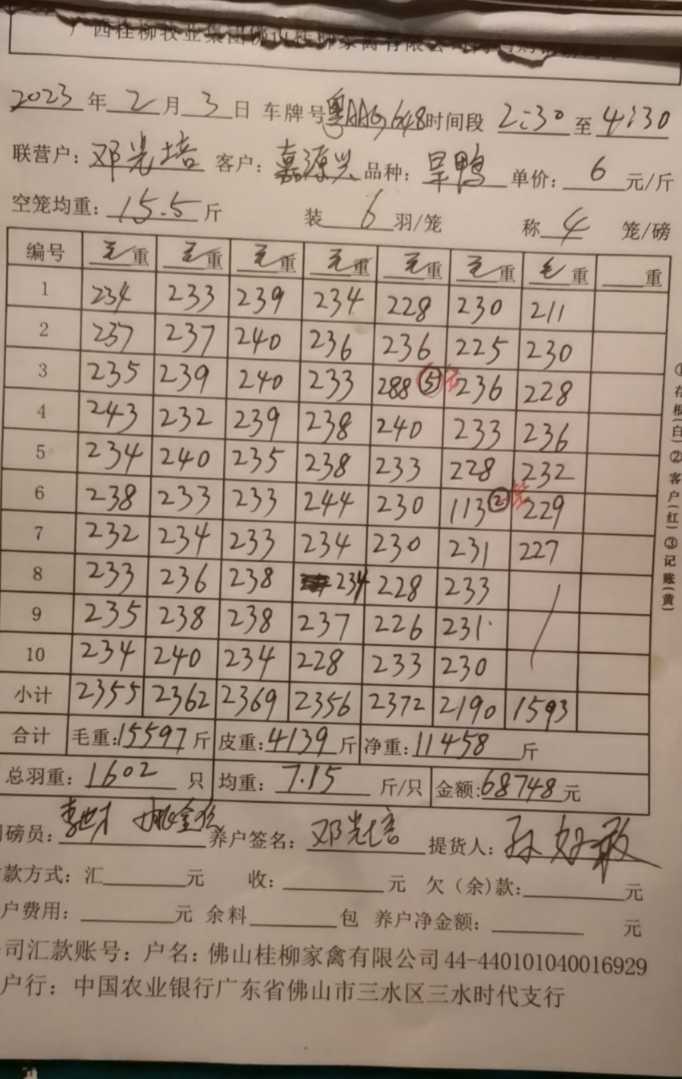 广西桂柳牧业集团佛山桂柳家禽有限公司
2023年2月3日 车牌号粤AAG648时间段2:30至4:30
联营户:邓光培 客户:嘉源兴 品种:旱鸭 单价:6元/斤
空笼均重:15.5斤 装6羽/笼 称4笼/磅
编号 毛重 毛重 毛重 毛重 毛重 毛重 毛重 重
1 234 233 239 234 228 230 211
2 237 237 240 236 236 225 230
3 235 239 240 233 288⑤笼 236 228
4 243 232 239 238 240 233 236
5 234 240 235 238 233 228 232
6 238 233 233 244 230 113②笼 229
7 232 234 233 234 230 231 227
8 233 236 238 234 228 233
9 235 238 238 237 226 231
10 234 240 234 228 233 230
小计 2355 2362 2369 2356 2372 2190 1593
合计 毛重:15597斤 皮重:4139斤 净重:11458斤
总羽重:1602只 均重:7.15斤/只 金额:68748元
磅员:李世才 养户签名:邓光培 提货人:孙好敢
款方式:汇 元 收: 元 欠(余)款: 元
户费用: 元 余料 包 养户净金额: 元
司汇款账号:户名:佛山桂柳家禽有限公司44-440101040016929
户行:中国农业银行广东省佛山市三水区三水时代支行
①存根(白)②客户(红)③记账(黄)